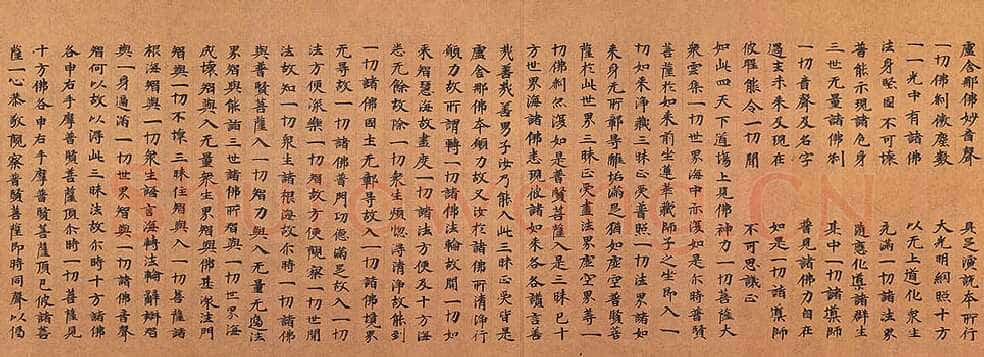 盧舍那佛妙音聲 具足演說本所行
一切佛刹微塵數 大光明網照十方
一一光中有諸佛 以无上道化衆生
法身堅固不可壞 充滿一切諸法界
普能示現諸色身 隨應化導諸群生
三世无量諸佛刹 其中一切諸導師
一切音聲及名字 普見諸佛力自在
過去未來及現在 如是一切諸導師
彼能令一切聞 不可思議正
如此四天下道場上見佛神力一切普隘大
衆雲集一切世界海中亦復如是尒時普賢
菩薩於如來前坐蓮華藏師子之坐即入一
切如來淨藏三昧正受普照一切法界諸如
來身无所鄣导離垢滿足猶如虛空普賢菩
薩於此世界三昧正受盡法界虛空界等一
切佛刹亦復如是普賢菩薩入是三昧已十
方世界海諸佛悉現彼諸如來各各讚言善
哉善哉善男子汝乃能入此三昧正受皆是
盧舍那佛本願力故又汝於諸佛所清淨行
願力故所謂轉一切諸佛法輪故開一切如
來智慧海故盡度一切諸法方便及十方海
悉无餘故除一切衆生煩惱得清淨故能到
一切諸佛國土无鄣导故入一切諸佛境界
无导故一切諸佛普門功德滿足故入一切
法方便樂一切智故方便觀察一切世間
法故知一切衆生諸根海故尒時一切諸佛
與普賢菩薩入一切智力與入无量无邊法
界智與能詣三世諸佛所智與一切世界海
成壞智與入无量衆生界智與佛甚深法門
智與一切不壞三昧住智與入一切菩薩諸
根海智與一切衆生語言海轉法輪辭辯智
與一身遍滿一切世界智與一切諸佛音聲
智何以故以得此三昧法故尒時十方諸佛
各申右手摩普賢菩薩頂尒時一切菩薩見
十方佛各申右手摩普賢菩薩頂已彼諸菩
薩一心恭敬觀察普賢菩薩即時同聲以偈